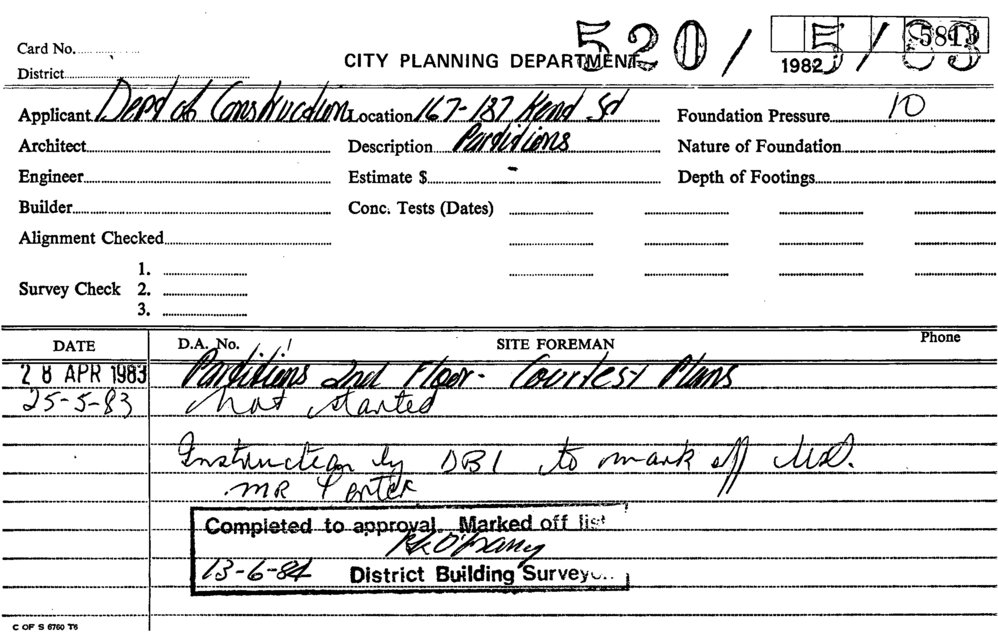 520/5/83
5813
1982
Card No.
CITY PLANNING DEPARTMENT
District
Applicant Dept of Construction Location 167-187 Kent St Foundation Pressure 10
Architect Description Partitions Nature of Foundation
Engineer Estimate $ - Depth of Footings
Builder Conc. Tests (Dates)
Alignment Checked
1.
Survey Check 2.
3.
DATE D.A. No. SITE FOREMAN Phone
28 APR 1983 Partitions 2nd Floor - Courtesy Plans
25-5-83 Not started
Instruction by DBI to mark off list.
MR Porter
Completed to approval. Marked off list
13-6-84 District Building Surveyor
C OF S 6760 T6